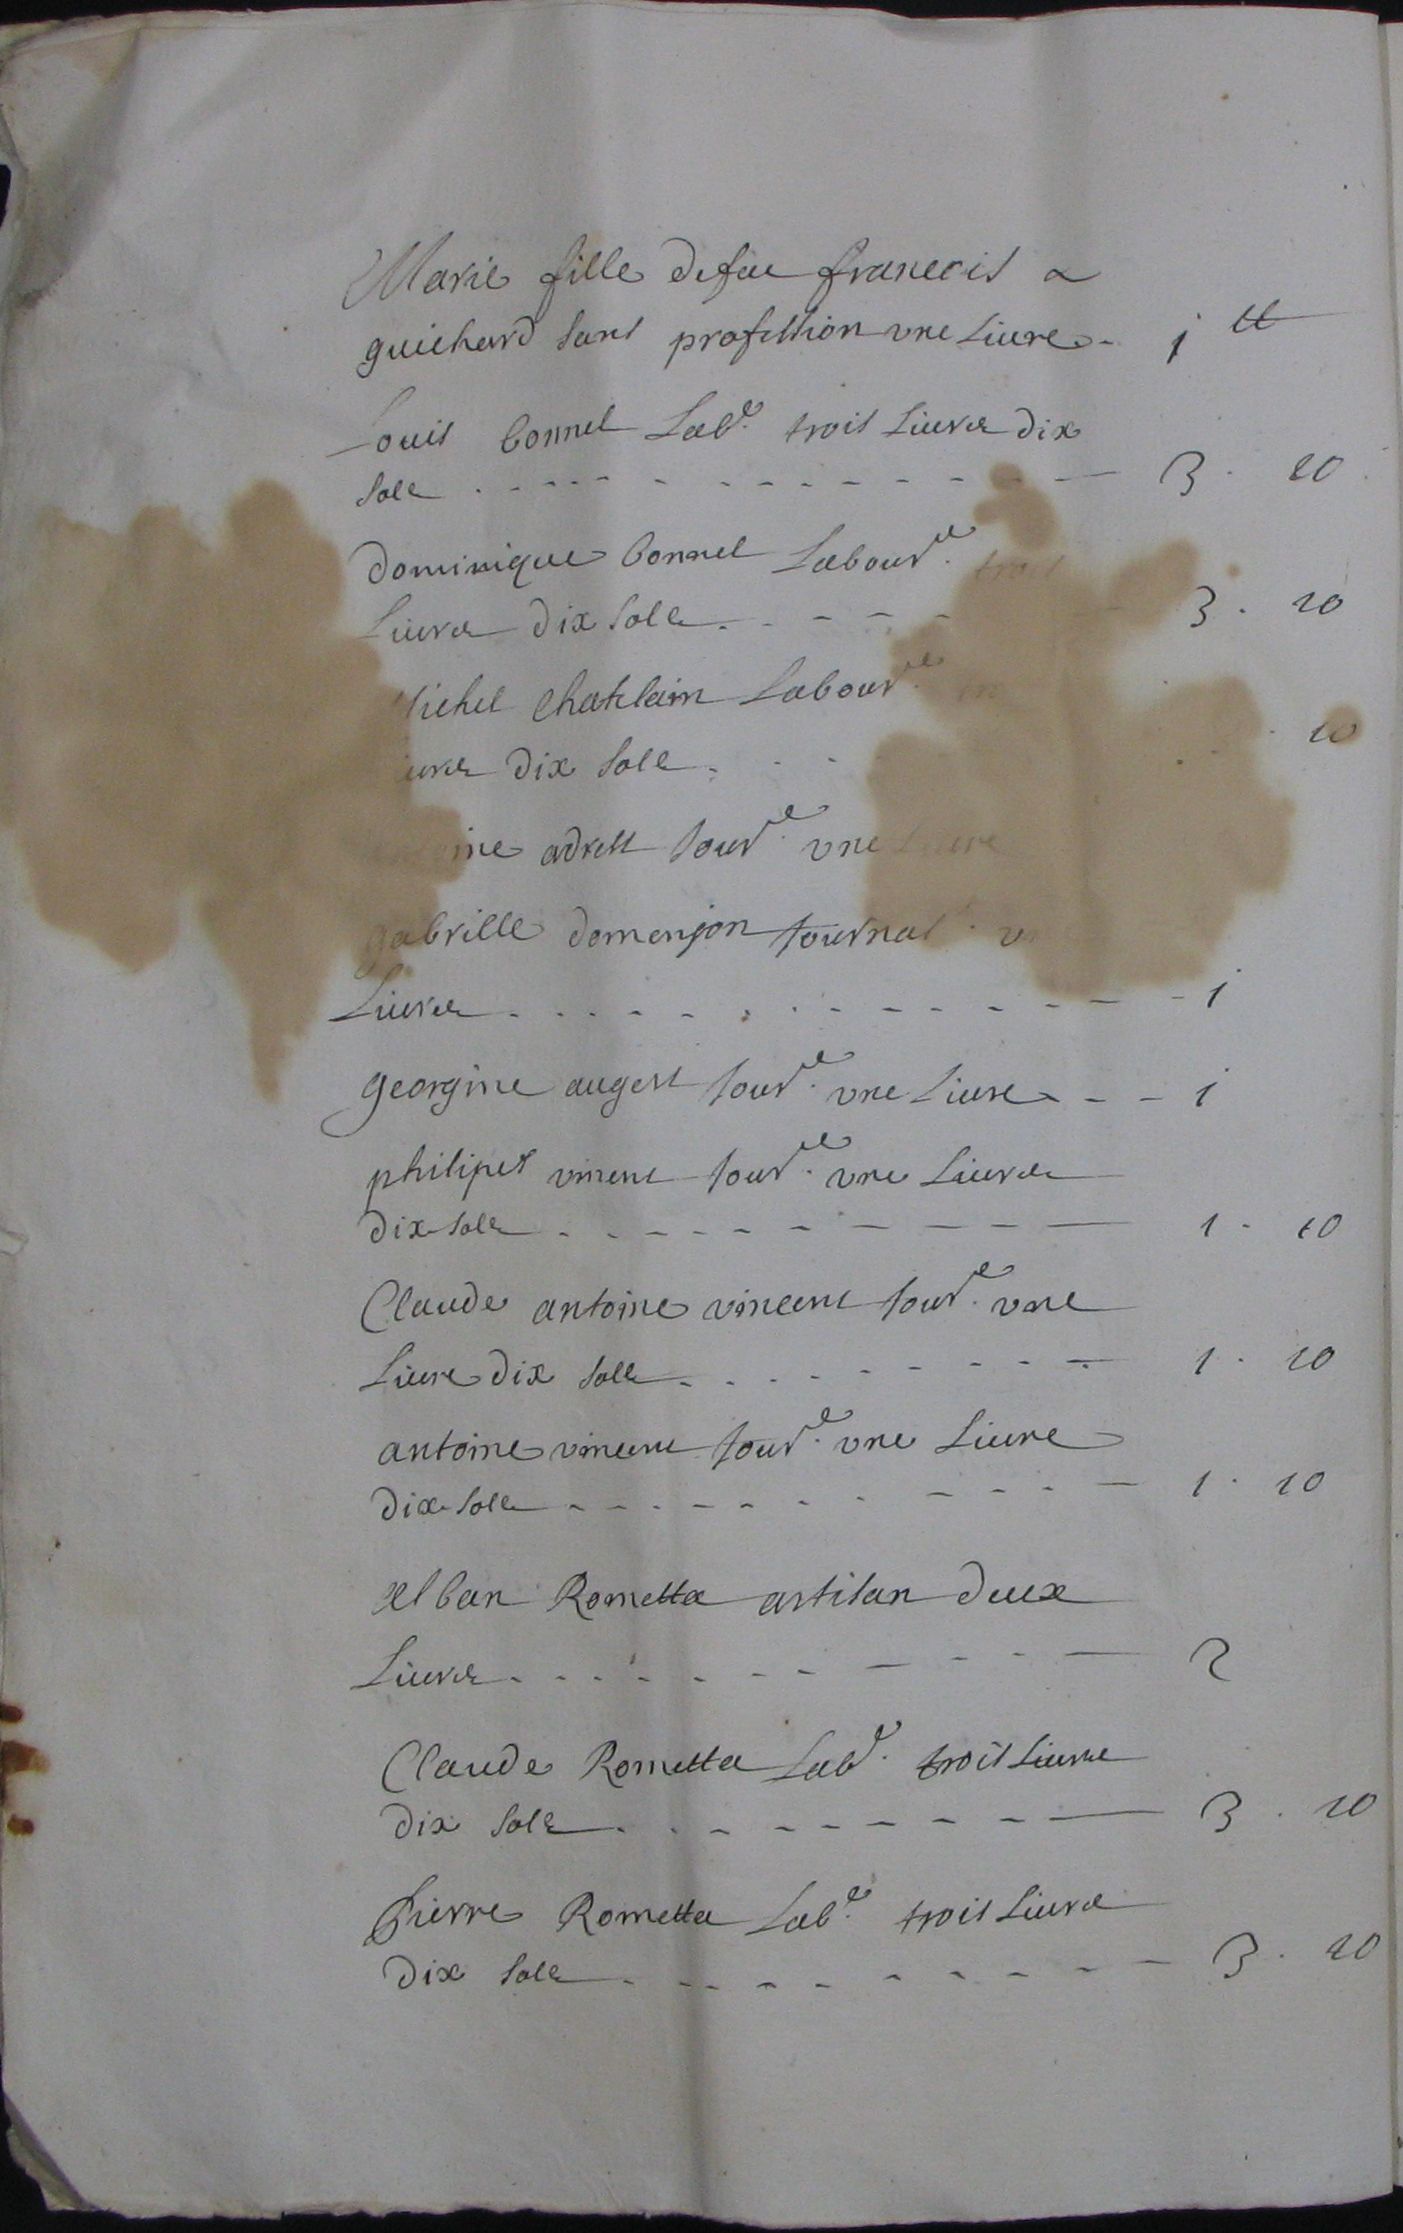 Marie fille defue francois
guichard sans profession une Livre - 1 ₶
Louis bonnel Labr. trois Livres dix
sols - - - - - 3 · 10
dominique bonnel Labourr. trois
Livres dix sols - - - - - 3 · 10
Michel Chatelain Labourr.
Livres dix sols - - - 10
adrest Jourr. une Livre
gabrille domenjon Journalr.
Livres - - - - - 1
georgine augert Jourr. une Livre - - - 1
philipes vincent Jourr. une Livres
dix sols - - - - - 1 · 10
Claude antoine vincent Jourr. une
Livre dix sols - - - - - 1 · 10
antoine vincent Jourr. une Livre
dix sols - - - - - 1 · 10
alban Rometta artisan deux
Livres - - - - - 2
Claude Rometta Labr. trois Livres
dix sols - - - - - 3 · 10
pierre Rometta Labr. trois Livres
dix sols - - - - - 3 · 10